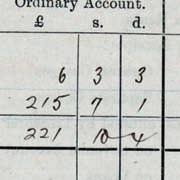 Ordinary Account.
£ s. d.
6 3 3
215 7 1
221 10 4